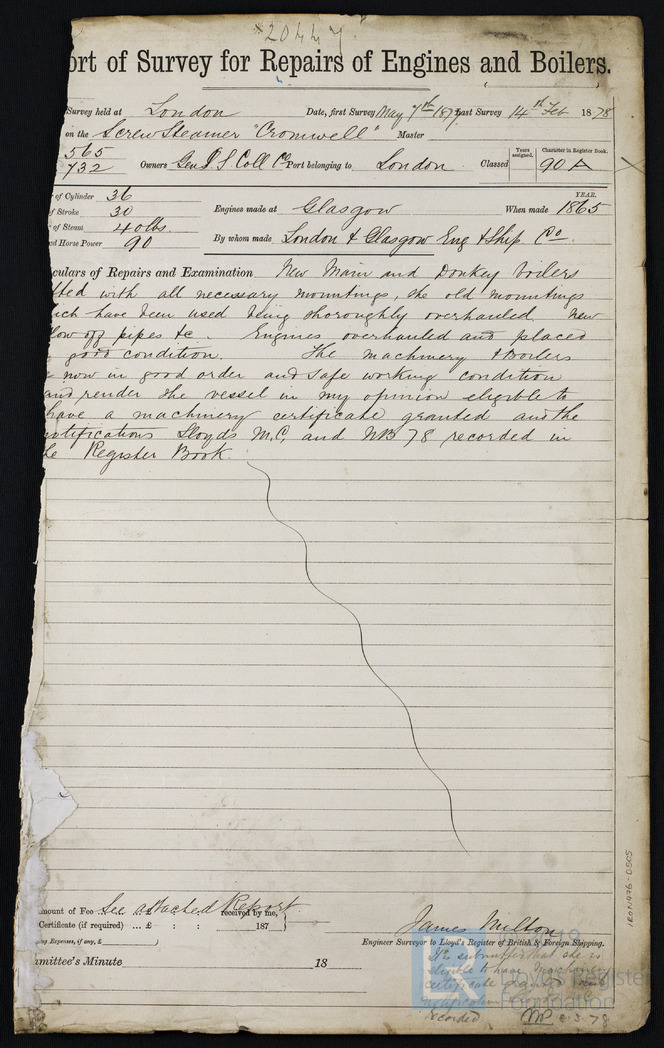 *20447.
ort of Survey for Repairs of Engines and Boilers.
Survey held at London Date, first Survey May 7th 1877 Last Survey 14th Feb 1878
on the Screw Steamer "Cromwell" Master
565
732 Owners Genl S Coll Co Port belonging to London Classed Years assigned. Character in Register Book. 90 A
of Cylinder 36
of Stroke 30
of Steam 40 lbs.
Horse Power 90
Engines made at Glasgow When made YEAR. 1865
By whom made London & Glasgow Eng & Ship Co.
culars of Repairs and Examination New Main and Donkey boilers
tted with all necessary mountings, the old mountings
ich have been used being thoroughly overhauled new
low off pipes &c. Engines overhauled and placed
good condition. The machinery & Boilers
now in good order and safe working condition
and render the vessel in my opinion eligible to
have a machinery certificate granted and the
notifications Lloyds M.C. and NB 78 recorded in
e Register Book.
mount of Fee See attached Report. received by me,
Certificate (if required) ... £ : : 187
ing Expenses, if any, £
James Milton
Engineer Surveyor to Lloyd's Register of British & Foreign Shipping.
mmittee's Minute 18
It is submitted that she is
eligible to have machinery
certificate granted and
notification
recorded 2.3.78
IRON976-0505
Lloyd's Register
Foundation